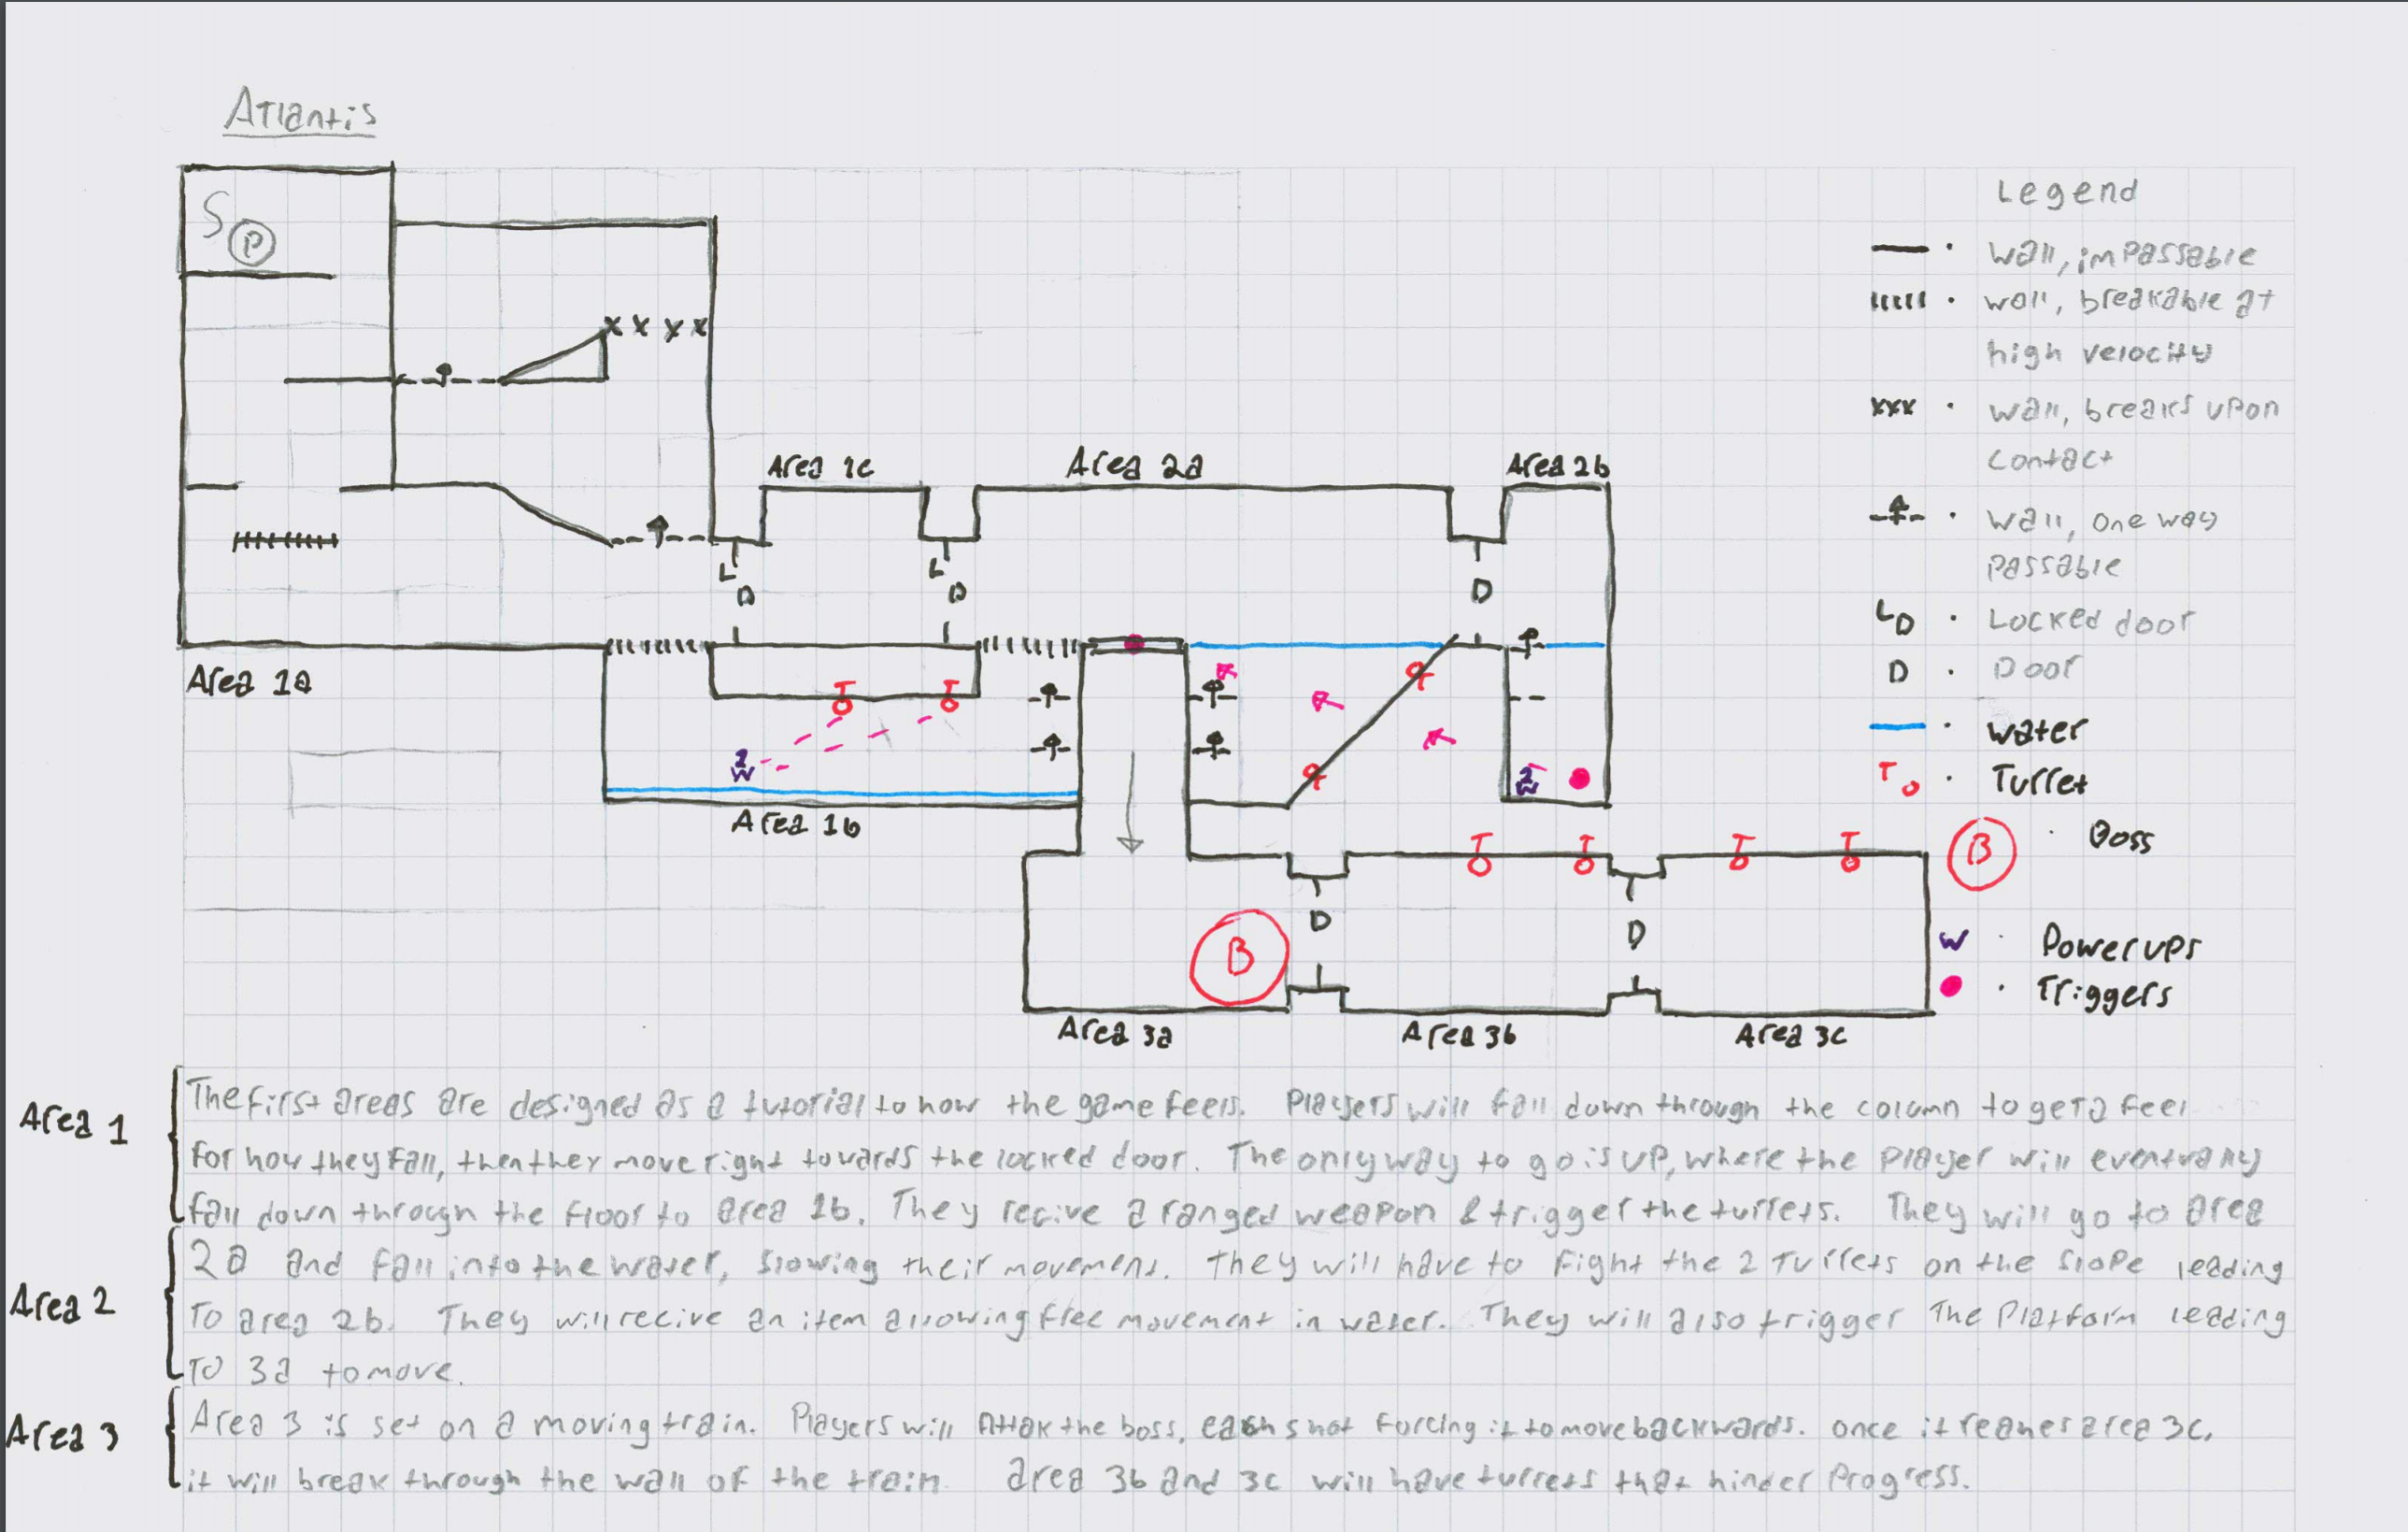 Atlantis
S P
Legend
wall, impassable
wall, breakable at
high velocity
xxx
wall, breaks upon
contact
wall, one way
passable
LD
Locked door
D
Door
water
TO
Turret
B
Boss
W
Powerups
Triggers
x x x x
Area 1c
Area 2a
Area 2b
L D
L D
D
Area 1a
2 W
2 W
Area 1b
D
D
B
Area 3a
Area 3b
Area 3c
Area 1
The first areas are designed as a tutorial to how the game feels. Players will fall down through the column to get a feel
for how they fall, then they move right towards the locked door. The only way to go is up, where the player will eventually
fall down through the floor to area 1b. They recive a ranged weapon & trigger the turrets. They will go to area
Area 2
2a and fall into the water, slowing their movement. They will have to fight the 2 turrets on the slope leading
to area 2b. They will recive an item allowing free movement in water. They will also trigger the platform leading
to 3a to move.
Area 3
Area 3 is set on a moving train. Players will attak the boss, each shot forcing it to move backwards. once it reahes area 3c,
it will break through the wall of the train. area 3b and 3c will have turrets that hinder progress.